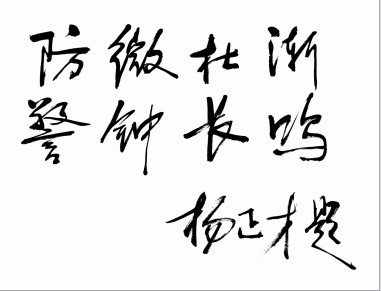 防微杜渐
警钟长鸣
杨正才题